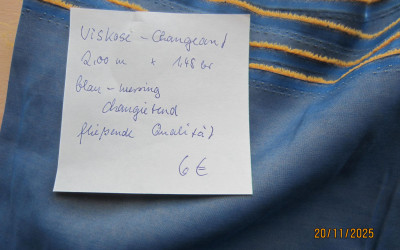 Viskose - Changeant
2,00 m x 1,48 br
blau - messing
changierend
fließende Qualität
6 €
20/11/2025